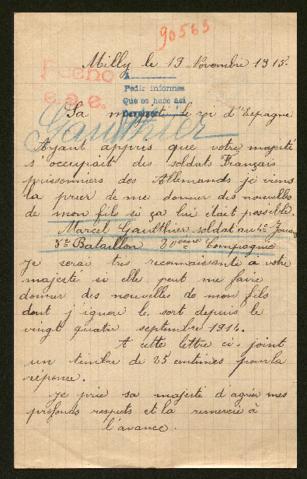 90563
Milly le 19 Novembre 1915.
Fecho
e.s.e.
Pedir informes
Que se hace aci
Sa majesté le roi d'Espagne
Gauthier
Ayant appris que votre majesté
s'occupait des soldats Français
prisonniers des Allemands je viens
la prier de me donner des nouvelles
de mon fils si ça lui était possible.
Marcel Gaulthier soldat au 4e Zouaves
8e Bataillon 30eme Compagnie
Je serai très reconnaissante a votre
majesté si elle peut me faire
donner des nouvelles de mon fils
dont j'ignore le sort depuis le
vingt quatre septembre 1914.
A cette lettre ci-joint
un timbre de 25 centimes pour la
réponse.
Je prie sa majesté d'agréer mes
profonds respects et la remercie à
l'avance.